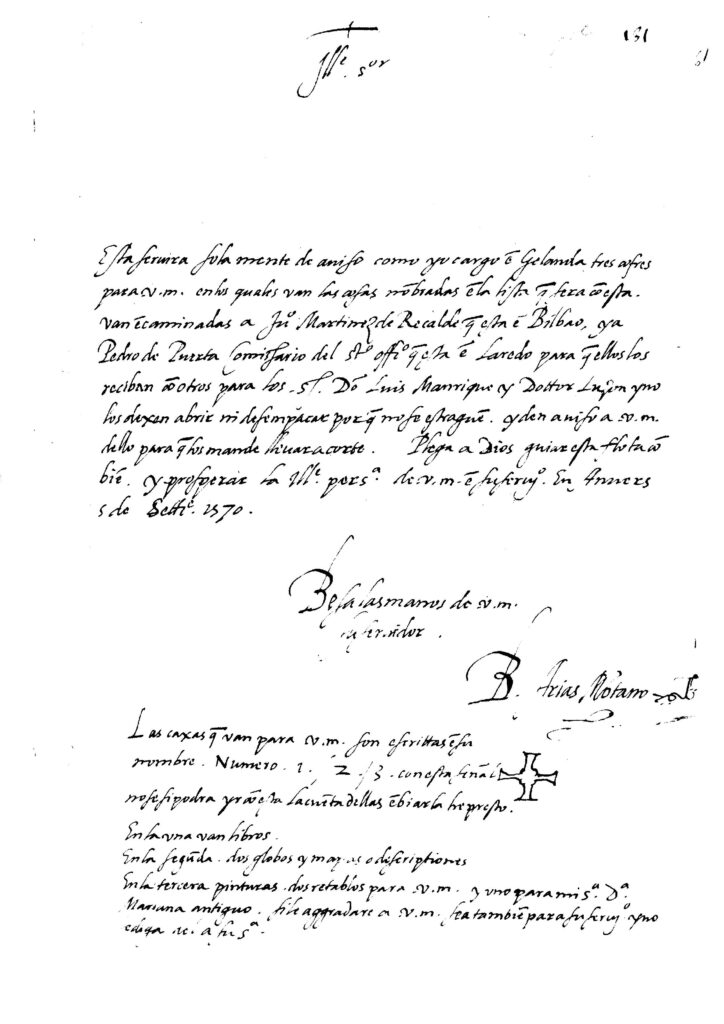 131
Ill.e s.or
Esta servira sola mente de aviso como yo cargo ē Gelanda tres cofres
para v.m. en los quales van las cosas nōbradas ēla lista q̄ sera cō esta.
van ēcaminadas a Ju.o Martinez de Recalde q̄ esta ē Bilbao, y a
Pedro de Puerta Comissario del s.to offi.o q̄ esta ē Laredo para q̄ ellos los
reciban cō otros para los .S.es Dō Luis Manrique y Dottor Luxon y no
los dexen abrir ni desempacar por q̄ no se estraguē. y den aviso a v.m.
dello para q̄ los mande llevar a corte. Plega a Dios guiar esta flota cō
biē. y prosperar la Ill.e pers.a de v.m. ē su servi.o. En Anvers
5 de Setti.e 1570.
Besa las manos de v.m.
su servidor.
B. Arias Mōtano
Las caxas q̄ van para v.m. son escrittas ē su
nombre. Numero. 1. 2. 3. con esta señal
no se si podra yr cō esta la cuēta dellas ēbiarla he presto.
En la una van libros.
En la segūda. dos globos y mapas o descriptiones
En la tercera pinturas. dos retablos para v.m. y uno para mi s.a D.a
Mariana antiguo. si le aggradare a v.m. sea tambiē para su servi.o y no
a su s.a